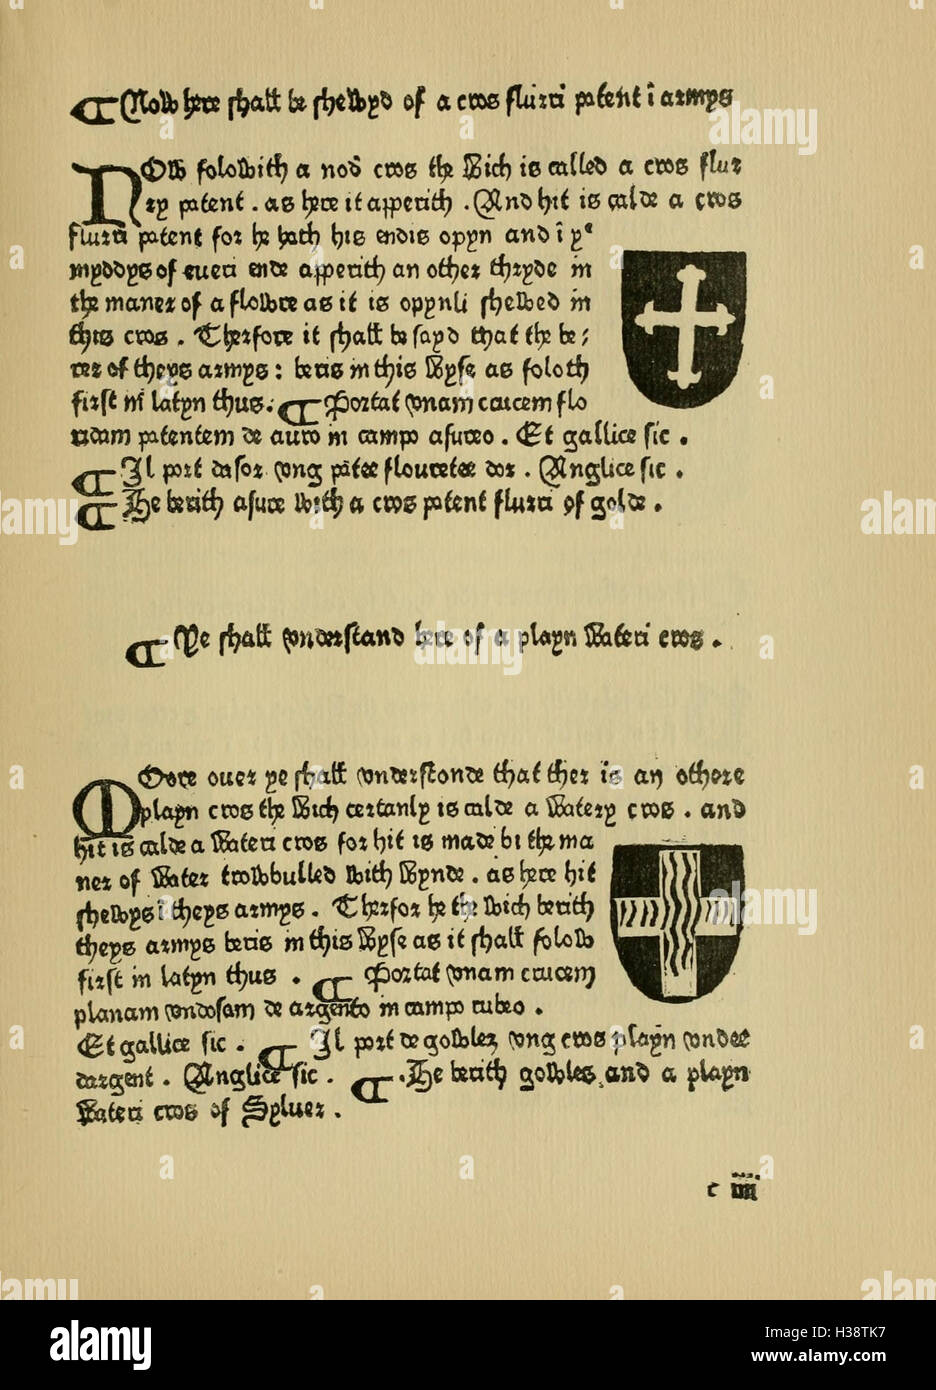 ¶ Now here shall be shewyd of a cros flurri patent ī armys
NOw folowith a nod cros the wich is called a cros flur
ry patent . as here it apperith . And hit is calde a cros
flurri patent for he hath his endis opyn and ī yᵉ
myddys of eueri ende apperith an other thyde in
the maner of a flowre as it is oppnli shewed in
this cros . Therfore it shall be sayd that the be;
rer of theys armys: beris in this wyse as foloth
first in latyn thus. ¶ Portat vnam crucem flo
ridam patentem de auro in campo asureo . Et gallice sic .
¶ Il port dasor vng patee flouretee dor . Anglice sic .
¶ He berith asure with a cros patent flurri of golde .
¶ Ye shall vnderstand here of a playn wateri cros .
MOore ouer ye shall vnderstonde that ther is an othere
playn cros the wich certanly is calde a watery cros . and
hit is calde a wateri cros for hit is made bi the ma
ner of water trowbulled with wynde . as here hit
shewys ī theys armys . Therfor he the wich berith
theys armys beris in this wyse as it shall folow
first in latyn thus . ¶ Portat vnam crucem
planam vndosam de argento in campo rubeo .
Et gallice sic . ¶ Il port de gowlez vng cros playn vndee
dargent . Anglice sic . ¶ .He berith gowles and a playn
wateri cros of Syluer .
c iiii
alamy
Image ID: H38TK7
www.alamy.com